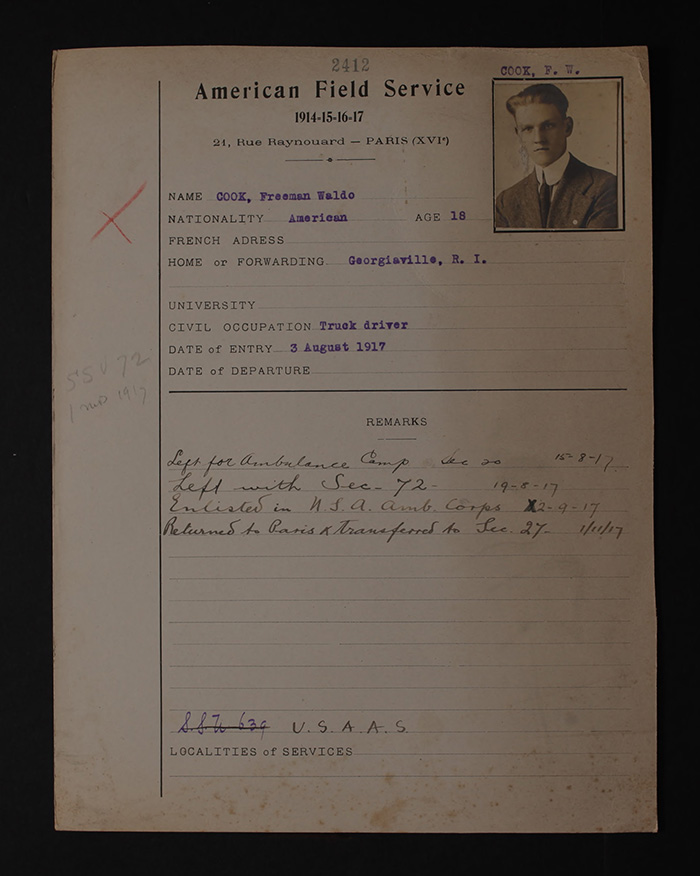 2412
COOK, F. W.
American Field Service
1914-15-16-17
21, Rue Raynouard — PARIS (XVIe)
NAME COOK, Freeman Waldo
NATIONALITY American AGE 18
FRENCH ADRESS
HOME or FORWARDING Georgiaville, R. I.
UNIVERSITY
CIVIL OCCUPATION Truck driver
DATE of ENTRY 3 August 1917
DATE of DEPARTURE
SSU 72
1 1917
REMARKS
Left for Ambulance Camp Sec 20 15-8-17
Left with Sec- 72- 19-8-17
Enlisted in U.S.A. Amb. Corps 2-9-17
Returned to Paris & transferred to Sec. 27- 1/11/17
SSU 639 U.S.A.A.S.
LOCALITIES of SERVICES